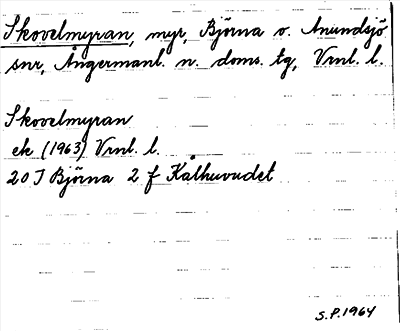 Skovelmyran, myr, Björna o. Anundsjö
snr, Ångermanl. n. doms. tg, Vrnl. l.
Skovelmyran
ek (1963) Vrnl. l.
20 J Björna 2 f Kålhuvudet
S.P. 1964